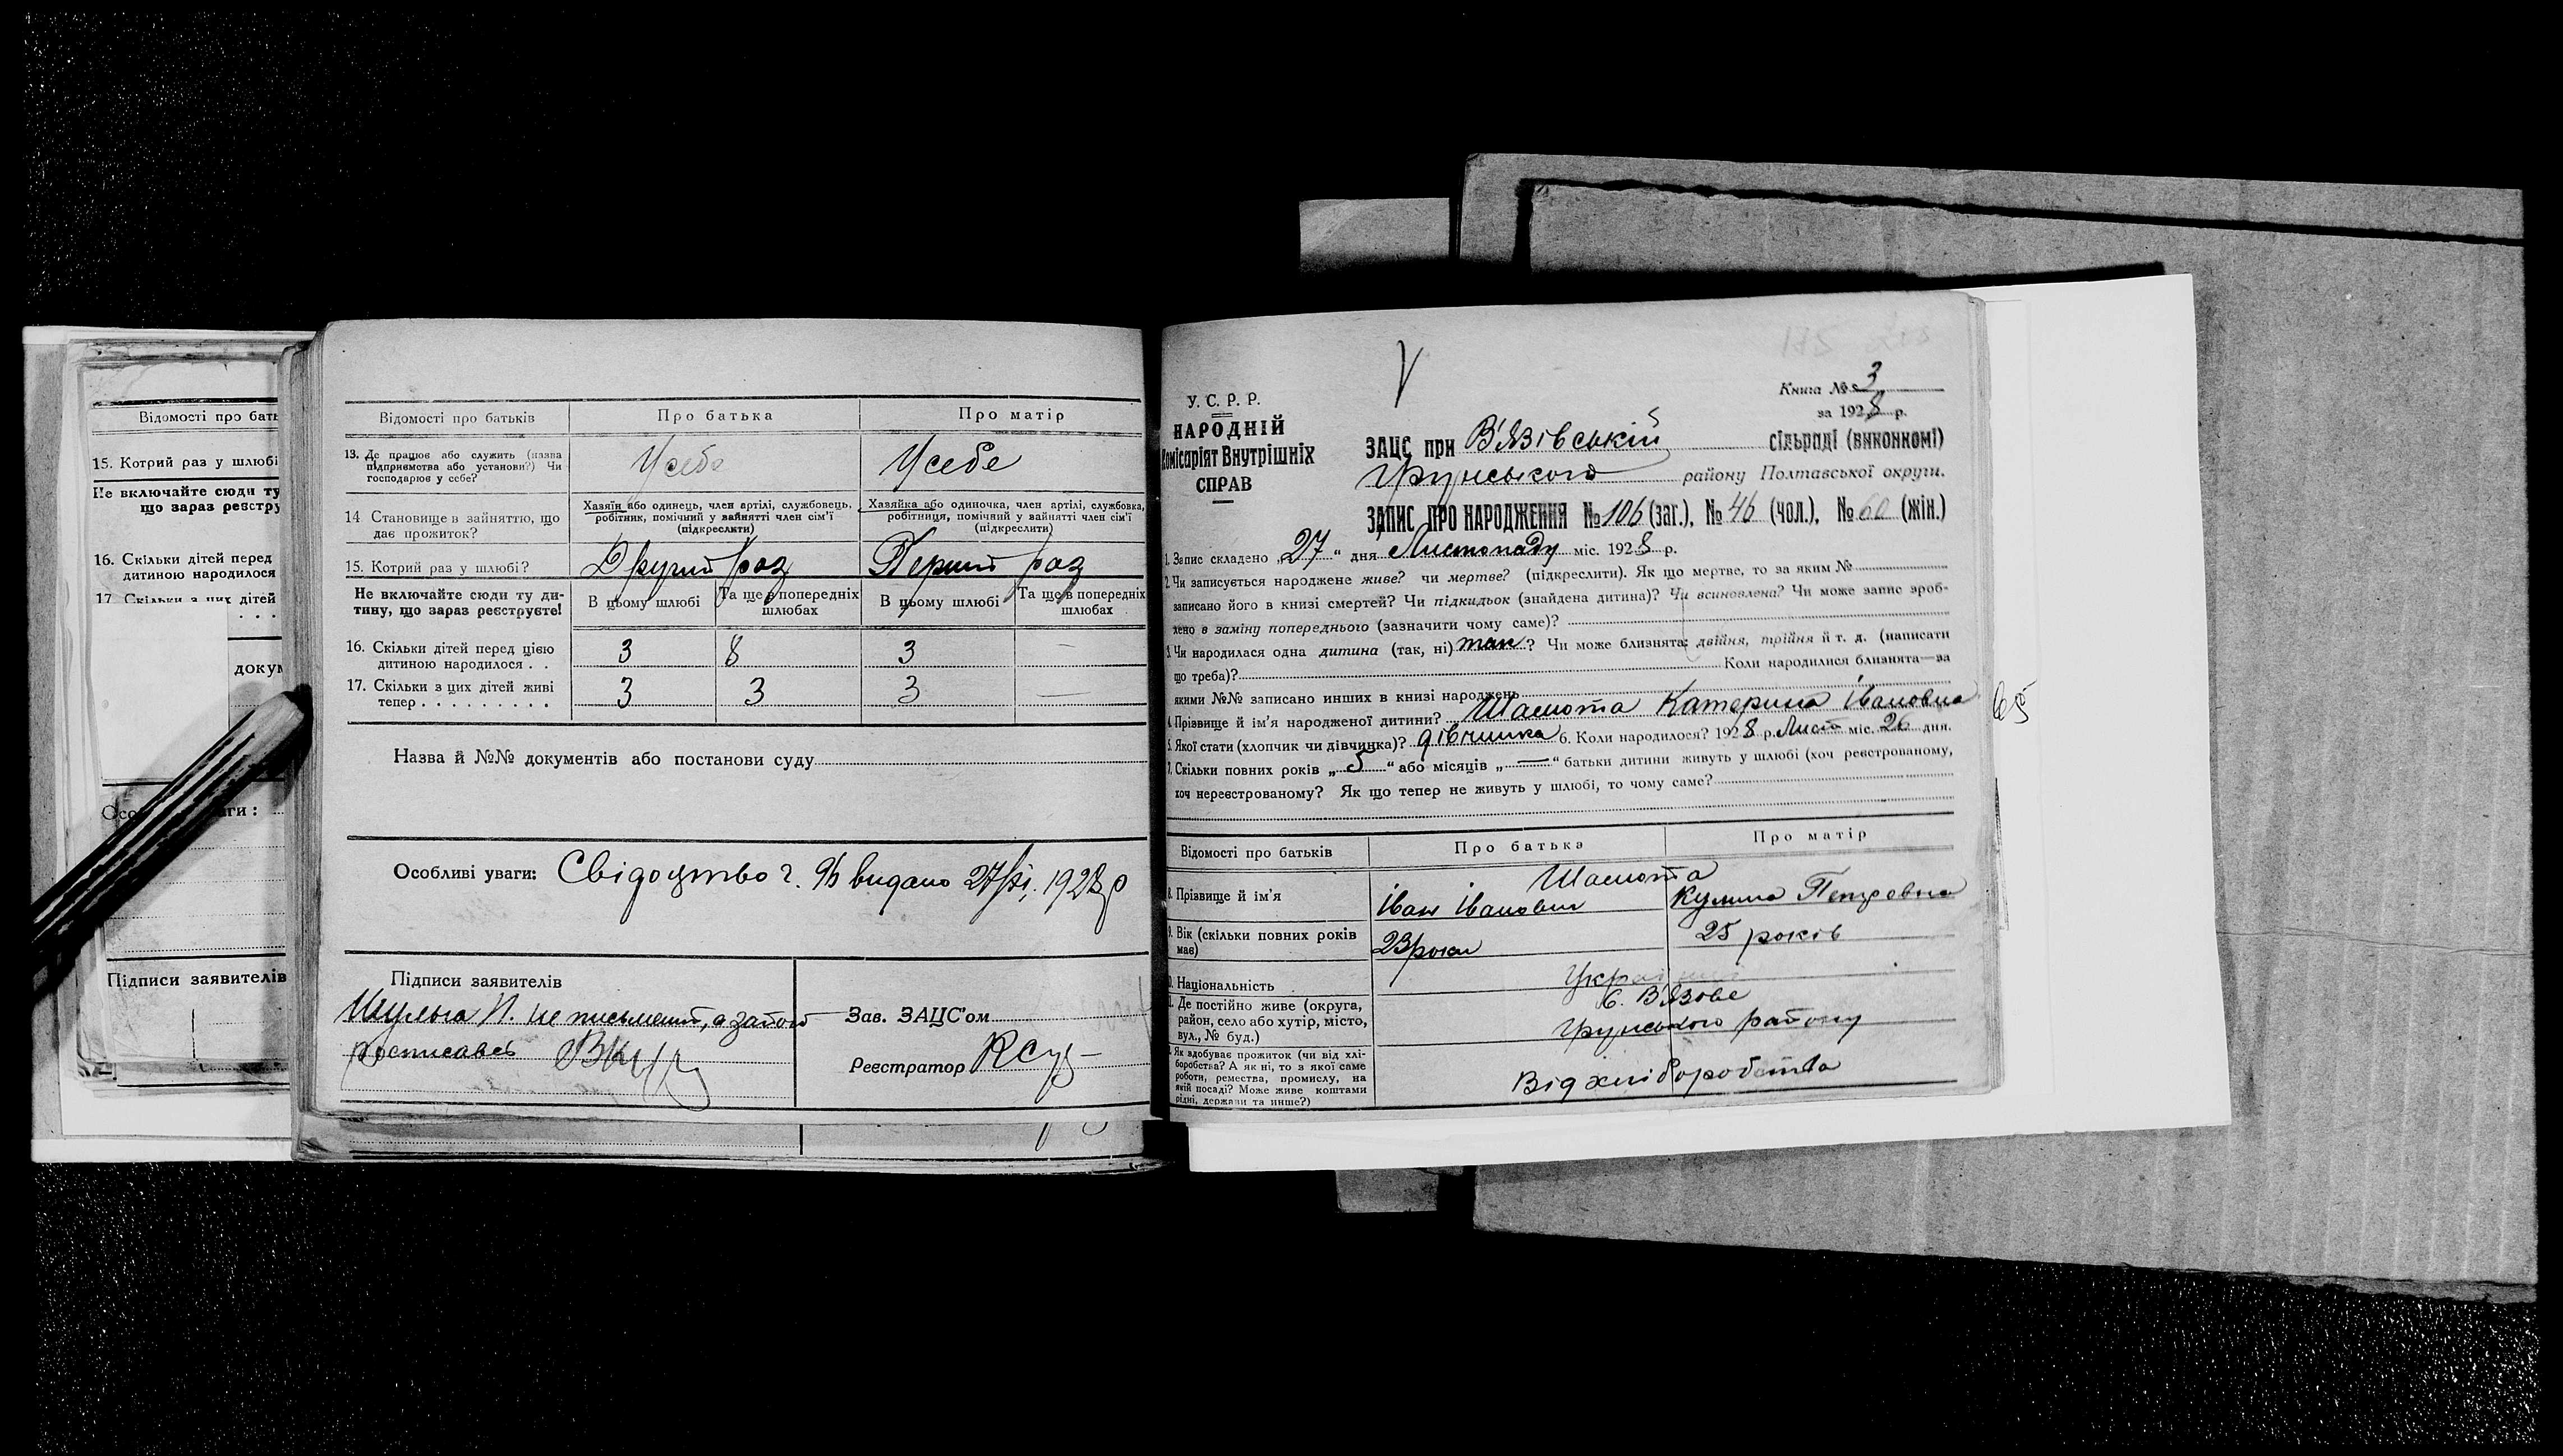 Відомості про бать
15. Котрий раз у шлюбі
Не включайте сюди ту
що зараз реєстру
16. Скільки дітей перед
дитиною народилося
17. Скільки з цих дітей
докум
Підписи заявителів
Відомості про батьків Про батька Про матір
13. Де працює або служить (назва
підприємства або установи?) Чи
господарює у себе?
Усебе Усебе
14 Становище в зайняттю, що
дає прожиток?
Хазяїн або одинець, член артілі, службовець,
робітник, помічний у зайнятті член сім'ї
(підкреслити)
Хазяйка або одиночка, член артілі, службовка,
робітниця, помічний у зайнятті член сім'ї
(підкреслити)
15. Котрий раз у шлюбі? Другий раз Перший раз
Не включайте сюди ту ди-
тину, що зараз реєструєте!
В цьому шлюбі Та ще в попередніх шлюбах В цьому шлюбі Та ще в попередніх шлюбах
16. Скільки дітей перед цією
дитиною народилося . . 3 8 3 —
17. Скільки з цих дітей живі
тепер . . . . . . . . . 3 3 3 —
Назва й №№ документів або постанови суду
Особливі уваги: Свідоцтво ч. 96 видано 27/XI. 1928 р
Підписи заявителів
Шульга И. не письмений, а затого
росписавсь
Зав. ЗАЦС'ом
Реєстратор
Книга № 3
за 1928 р.
У. С. Р. Р.
НАРОДНІЙ
Комісаріят Внутрішніх
СПРАВ
ЗАЦС при В'язівській сільраді (виконкомі)
Грунського району Полтавської округи.
ЗАПИС ПРО НАРОДЖЕННЯ № 106 (заг.), № 46 (чол.), № 60 (жін.)
1. Запис складено „27“ дня Листопаду міс. 1928 р.
2. Чи записується народжене живе? чи мертве? (підкреслити). Як що мертве, то за яким №
записано його в книзі смертей? Чи підкидьок (знайдена дитина)? Чи всиновлена? Чи може запис зроб-
лено в заміну попереднього (зазначити чому саме)?
3. Чи народилася одна дитина (так, ні) так? Чи може близнята: двійня, трійня й т. д. (написати
що треба)? Коли народилися близнята—за
якими №№ записано инших в книзі народжень
4. Прізвище й ім'я народженої дитини? Шамота Катерина Івановна
65
5. Якої стати (хлопчик чи дівчинка)? дівчинка 6. Коли народилося? 1928 р. Лист міс. 26 дня.
7. Скільки повних років „5“ або місяців „—“ батьки дитини живуть у шлюбі (хоч реєстрованому,
хоч нереєстрованому? Як що тепер не живуть у шлюбі, то чому саме?
Відомості про батьків Про батька Про матір
Шамота
8. Прізвище й ім'я Іван Іванович Кулина Петровна
9. Вік (скільки повних років
має) 23 роки 25 років
10. Національність
11. Де постійно живе (округа,
район, село або хутір, місто,
вул., № буд.)
С. В'язове
Грунського району
Як здобуває прожиток (чи від хлі-
боробства? А як ні, то з якої саме
роботи, ремества, промислу, на
якій посаді? Може живе коштами
рідні, держави та инше?)
Від хліборобства